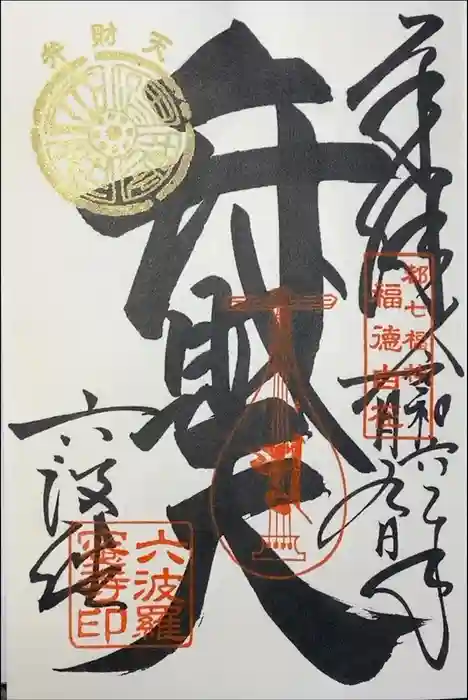 奉拝
令和六年
一月九日
都七福神
福徳自在
弁財天
六波羅
六波羅
蜜寺印